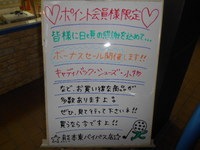 ♡ポイント会員様限定♡
皆様に日頃の感謝を込めて…
ボーナスセール開催します!!
キャディバック・シューズ・小物
など、お買い得な商品が
多数あります
ぜひ、見て行って下さいネ!!
買うなら今ですよ!!
東バイパス店☆